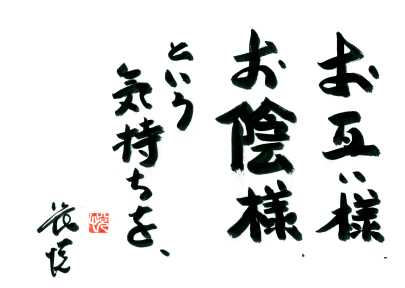 お互い様
お陰様
という
気持ちを、